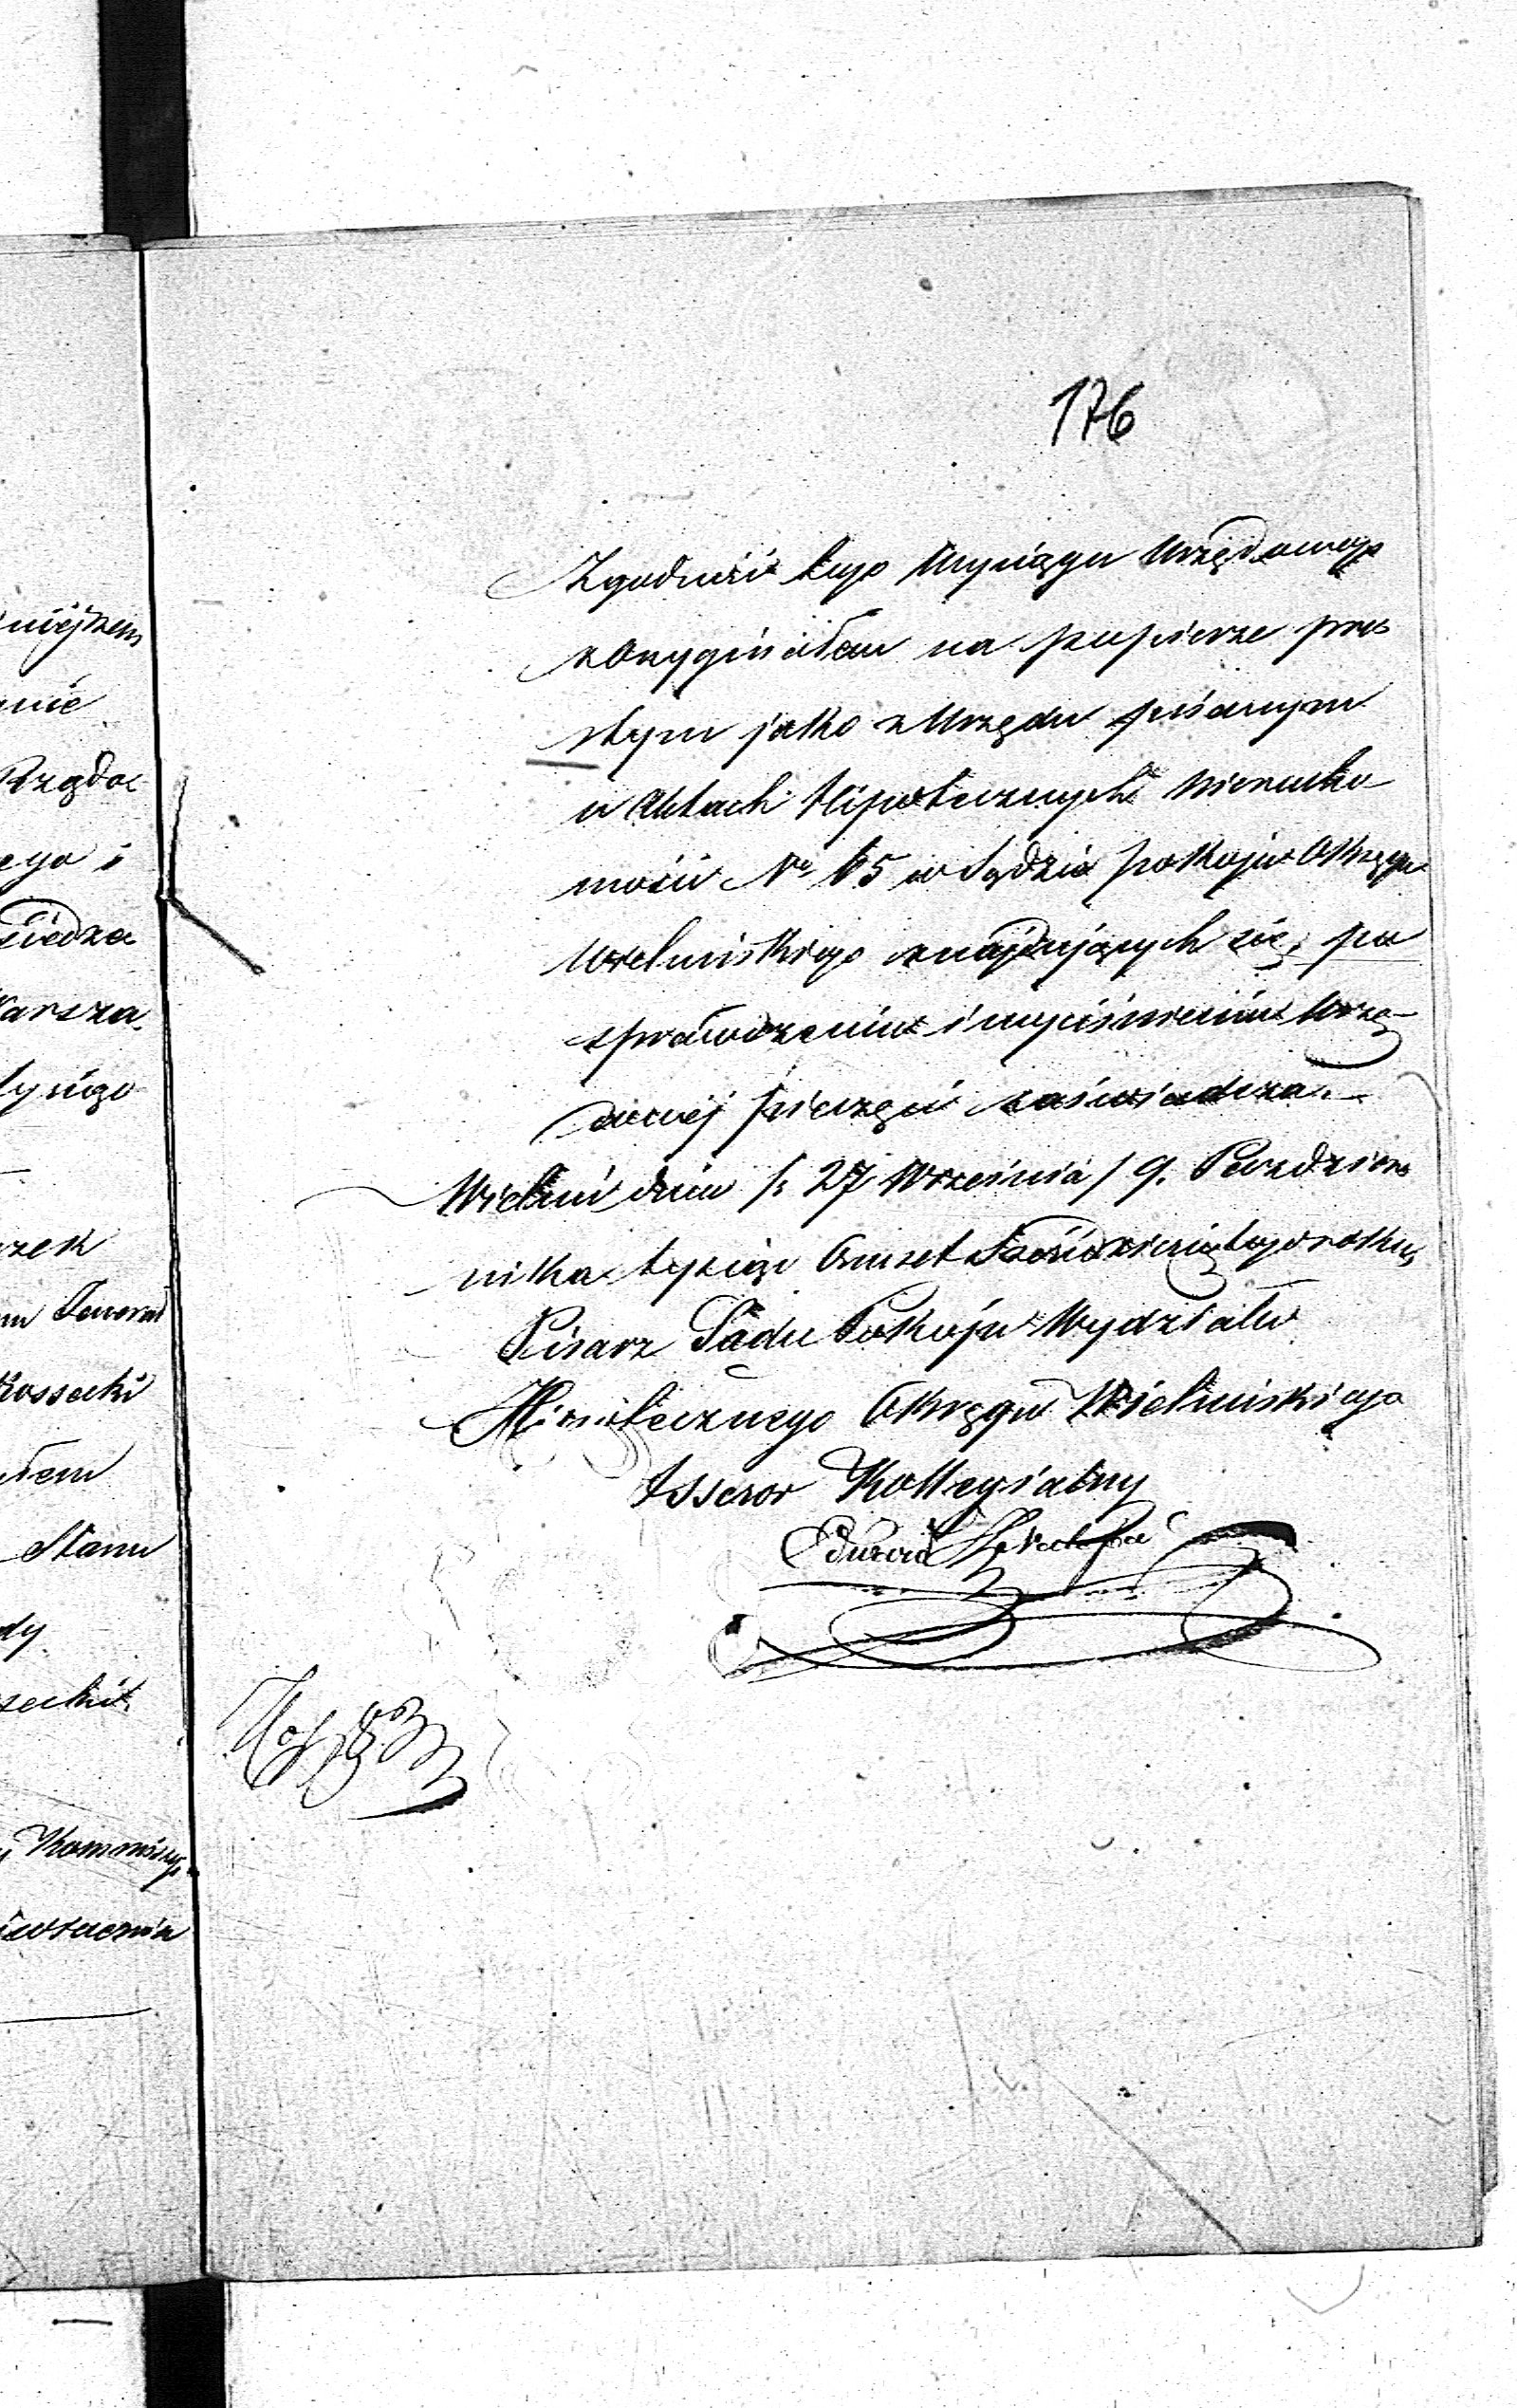 176
Zgodność tego Wyciągu Urzędowego
z Oryginałem na papierze pros
tym jako z Urzędu pisanym
w Aktach Hipotecznych Nierucho-
mości No 65 w Sądzie pokoju Okręgu
Wieluńskiego znajdujących się, po
sprawdzeniu i wyciśnieniu Urzę-
dowej pieczęci zaświadcza.-
Wieluń dnia 27 Września / 9. Paździer
nika tysiąc Ośmset Sześćdziesiątego roku
Pisarz Sądu Pokoju Wydziału
Hipotecznego Okręgu Wieluńskiego
Assesor Kollegialny
Edward
niejszem
nie
Rządo
ego i
siedza
Warsza
tysiąc
rzek
m Jenerał
Kossecki
ałem
Stanu
dy
secki
Kommissyi